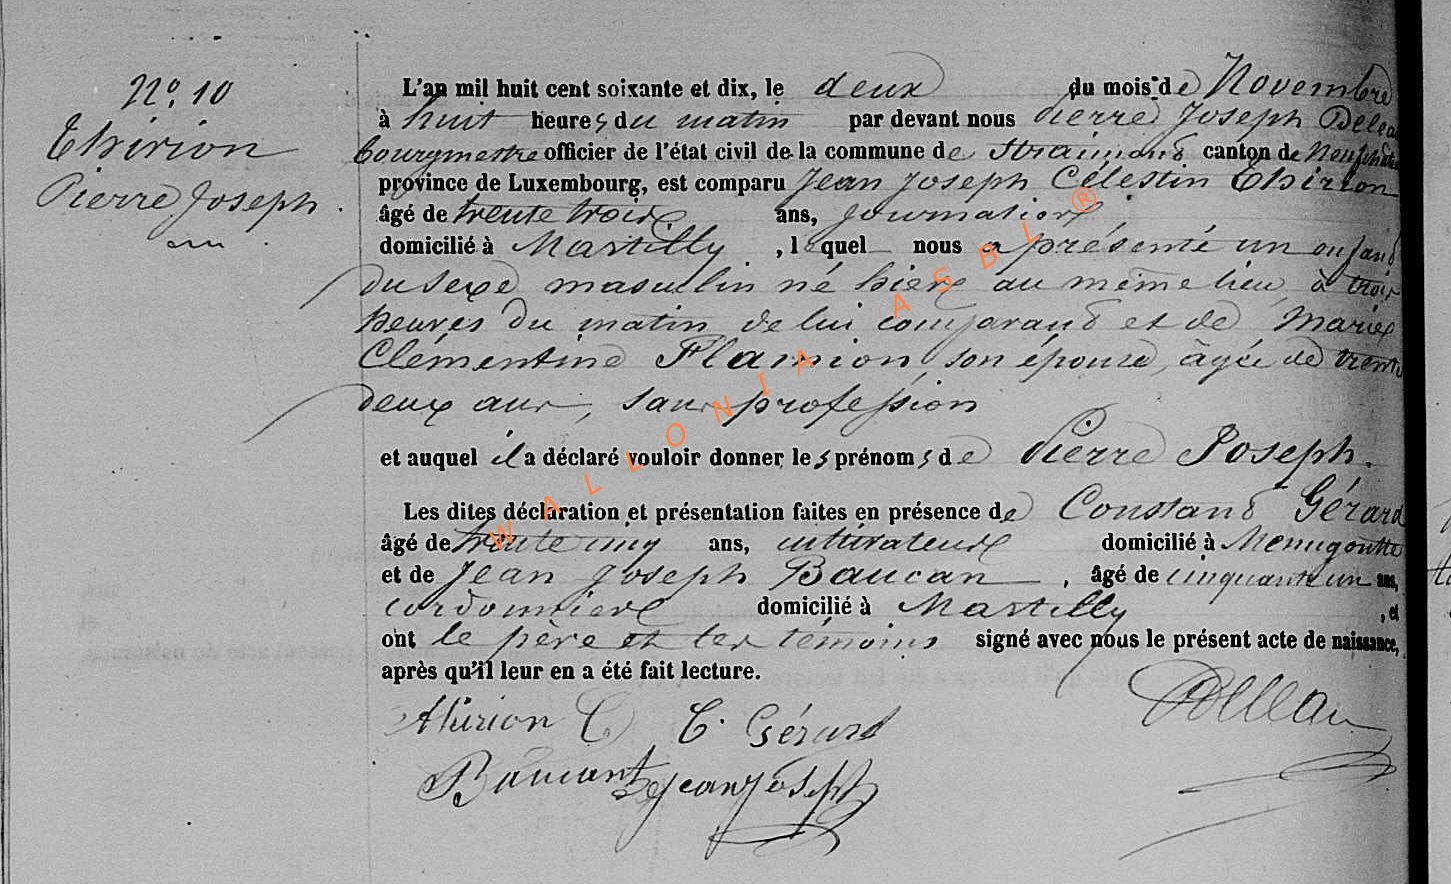 N° 10
Thirion
Pierre Joseph
L'an mil huit cent soixante et dix, le deux du mois de Novembre
à huit heures du matin par devant nous Pierre Joseph Deleau
bourgmestre officier de l'état civil de la commune de Straimont canton de Neufchâteau
province de Luxembourg, est comparu Jean Joseph Célestin Thirion
âgé de trente trois ans, journalier
domicilié à Martilly, lequel nous a présenté un enfant
du sexe masculin né hier au même lieu, à trois
heures du matin de lui comparant et de Marie
Clémentine Flamion, son épouse, âgée de trente
deux ans, sans profession
et auquel il a déclaré vouloir donner les prénoms de Pierre Joseph.
Les dites déclaration et présentation faites en présence de Constant Gérard
âgé de trente cinq ans, cultivateur domicilié à Menugoutte
et de Jean Joseph Baucan, âgé de cinquante un ans,
cordonnier domicilié à Martilly, et
ont le père et les témoins signé avec nous le présent acte de naissance,
après qu'il leur en a été fait lecture.
Thirion C C. Gérard Delleau
Baucant Jean Joseph
WALLONIA ASBL ®